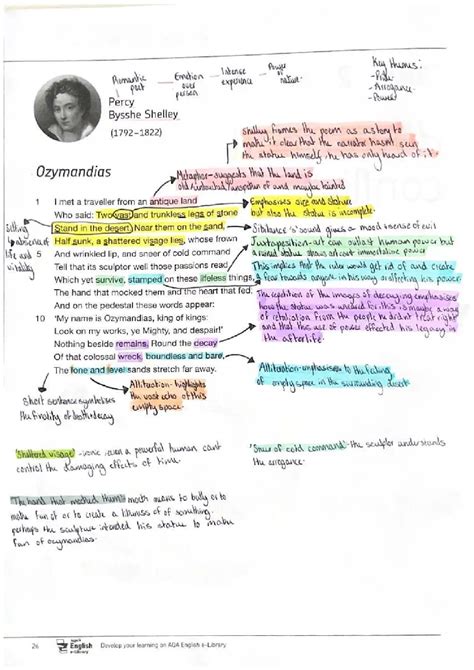 Romantic poet — Emotion over person — Intense experience — Power of nature.
Key themes:
- Pride
- Arrogance
- Power
Percy
Bysshe Shelley
(1792–1822)
Shelley frames the poem as a story to
make it clear that the narrator hasn't seen
the statue himself, he has only heard of it.
Ozymandias
Metaphor - suggests that the land is
old and maybe
1 I met a traveller from an antique land
Who said: Two vast and trunkless legs of stone
Stand in the desert. Near them on the sand,
Half sunk, a shattered visage lies, whose frown
5 And wrinkled lip, and sneer of cold command
Tell that its sculptor well those passions read
Which yet survive, stamped on these lifeless things,
The hand that mocked them and the heart that fed.
And on the pedestal these words appear:
10 'My name is Ozymandias, king of kings:
Look on my works, ye Mighty, and despair!'
Nothing beside remains. Round the decay
Of that colossal wreck, boundless and bare,
The lone and level sands stretch far away.
Emphasises size and stature
but also the statue is incomplete.
absence of
life and
vitality
Sibilance 's' sound gives a mood intense of evil
Juxtaposition - art can outlast human power but
a ruined statue shows art cant immortalise power
This implies that the ruler would get rid of and create
a fear towards anyone in his way reflecting his power.
The repetition of the images of decaying emphasises
how the statue was ruined for this. This is maybe a way
of retaliation from the people he didnt treat right
and that this use of power effected his legacy in
the afterlife.
Alliteration - emphasises to the feeling
of empty space in the surrounding desert
Alliteration - highlights
the vast echo of this
empty space.
Short sentence symbolises
the finality of death + decay
'Shattered visage' - ironic: even a powerful human cant
control the damaging effects of time.
'Sneer of cold command' - the sculptor understands
the arrogance.
'The hand that mocked them' - mock means to bully or to
make fun of or to create a likeness of of something.
perhaps the sculpture intended his statue to make
fun of ozymandias.
26 English e-Library Develop your learning on AQA English e-Library